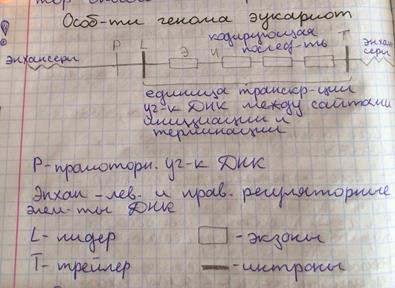 Особ-ти генома эукариот
энхансеры Р L Э И кодирующая послед-ть Т энхансеры
единица транскр-ции
уч-к ДНК между сайтами
инициации и
терминации
Р-промоторн. уч-к ДНК
Энхан-лев. и прав. регуляторные
элем-ты ДНК
L- лидер □ -экзоны
Т- трейлер — -интроны